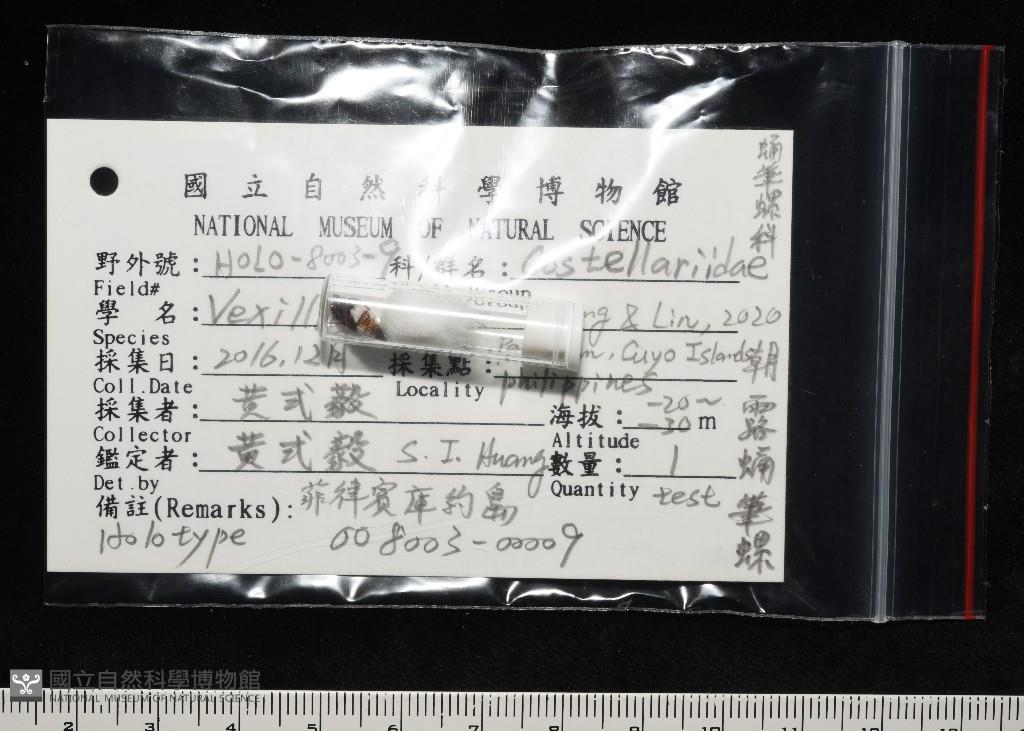 國立自然科學博物館
NATIONAL MUSEUM OF NATURAL SCIENCE
野外號: HOLO-8003-9 科/群名: Costellariidae
Field#
學名: Vexill & Lin, 2020
Species
採集日: 2016.12月 採集點: Cuyo Islands
Coll.Date Locality philippines
採集者: 黃式毅 海拔: -20~-30m
Collector Altitude
鑑定者: 黃式毅 S. I. Huang 數量: 1
Det.by Quantity test
備註(Remarks): 菲律賓庫約島
Holotype 008003-00009
蛹筆螺科
朝露蛹筆螺
國立自然科學博物館
NATIONAL MUSEUM OF NATURAL SCIENCE
2 3 4 5 6 7 8 9 10 11 12 13